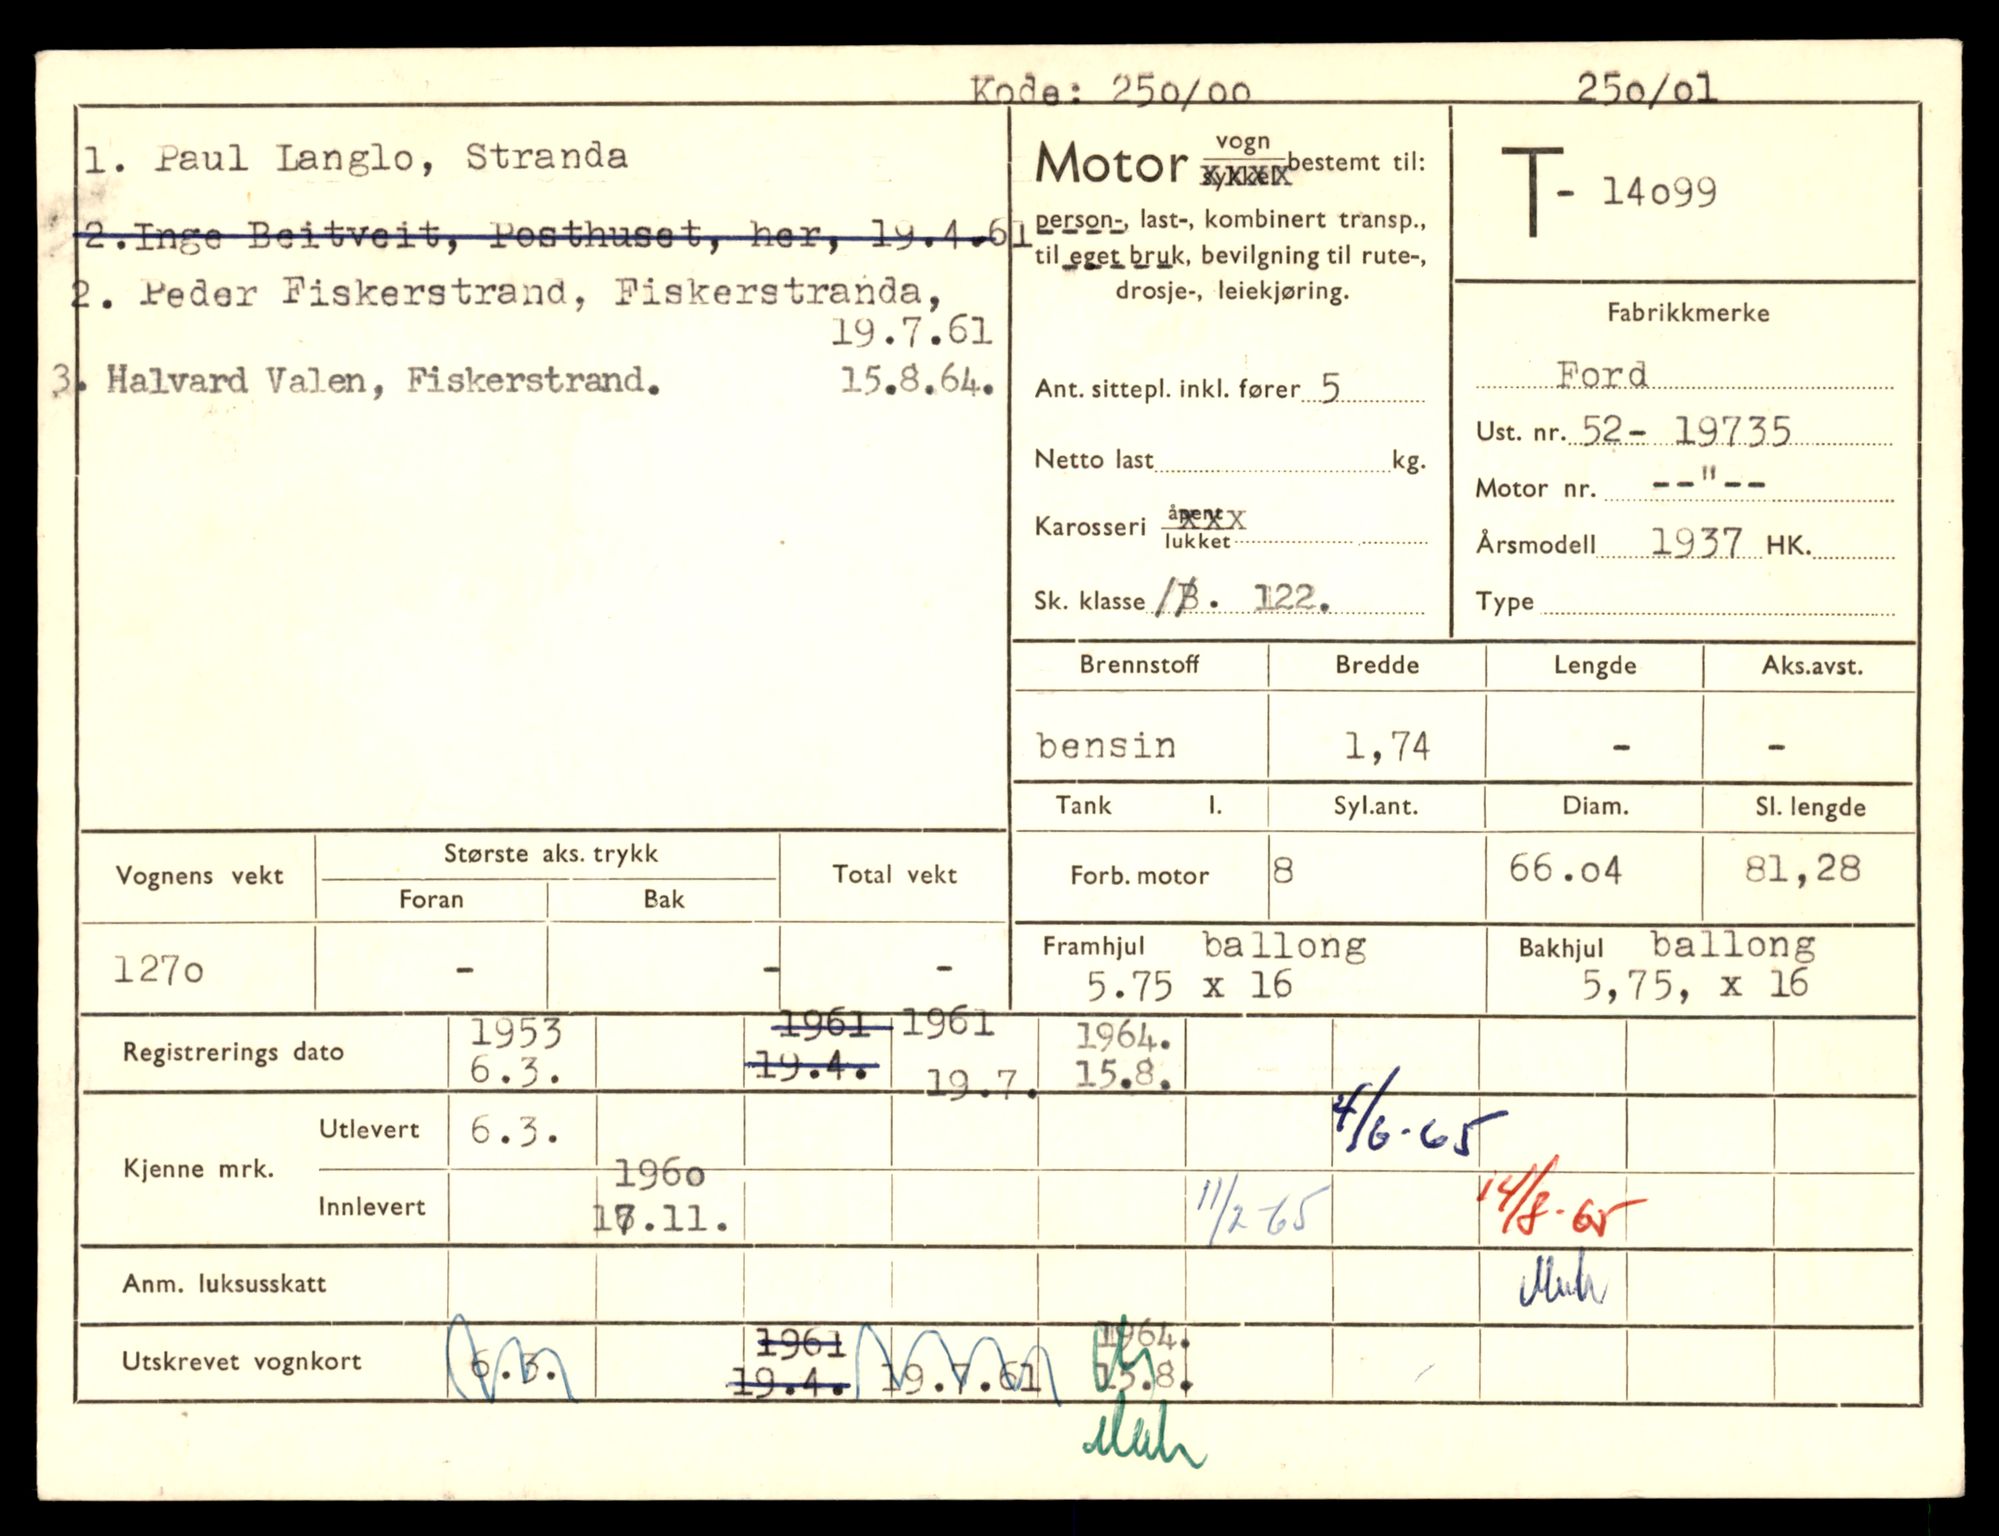 Kode: 250/00 250/01
1. Paul Langlo, Stranda
2. Inge Beitveit, Posthuset, her, 19.4.61
2. Peder Fiskerstrand, Fiskerstranda,
19.7.61
3. Halvard Valen, Fiskerstrand. 15.8.64.
Motor vogn bestemt til:
sykkel
person-, last-, kombinert transp.,
til eget bruk, bevilgning til rute-,
drosje-, leiekjøring.
Ant. sittepl. inkl. fører 5
Netto last kg.
Karosseri åpent
lukket
Sk. klasse B. 122.
T- 14o99
Fabrikkmerke
Ford
Ust. nr. 52- 19735
Motor nr. --"--
Årsmodell 1937 HK.
Type
Brennstoff Bredde Lengde Aks.avst.
bensin 1,74 - -
Tank l. Syl.ant. Diam. Sl. lengde
Forb. motor 8 66.o4 81,28
Framhjul ballong Bakhjul ballong
5.75 x 16 5,75, x 16
Vognens vekt Største aks. trykk Total vekt
Foran Bak
127o - - -
1953 1961 1961 1964.
Registrerings dato 6.3. 19.4. 19.7. 15.8.
Kjenne mrk. Utlevert 6.3. 4/6-65
1960
Innlevert .11. 11/2-65 14/8-65
Anm. luksusskatt
1961 1964.
Utskrevet vognkort 6.3. 19.4. 19.7.61 15.8.